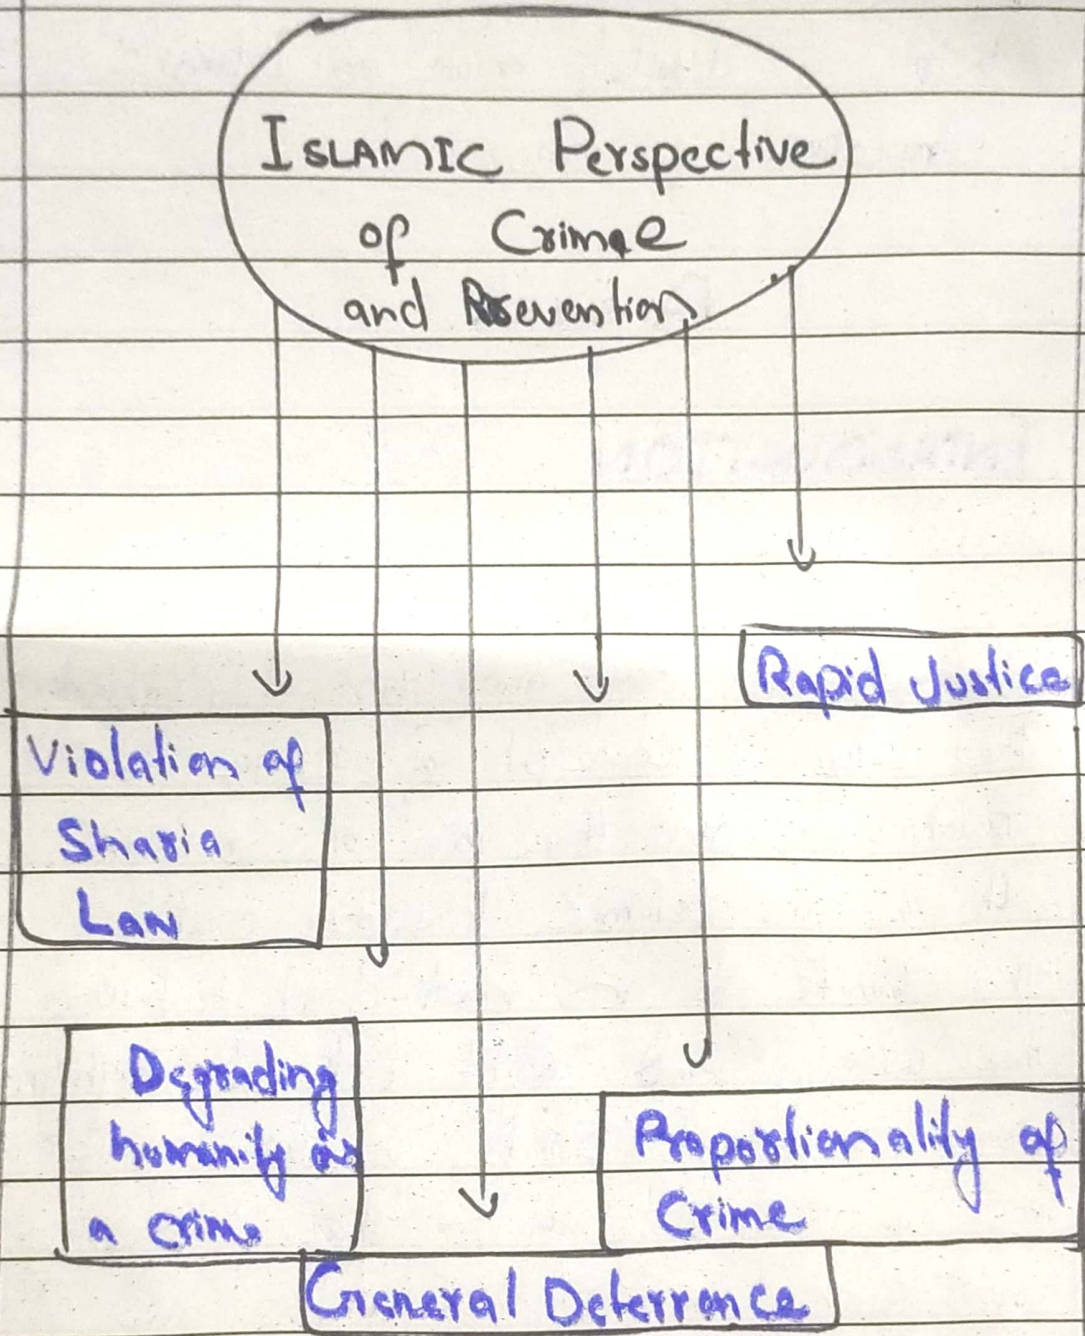 ISLAMIC Perspective
of Crime
and Prevention
Rapid Justice
Violation of
Sharia
Law
Degrading
humanity as
a crime
Proportionality of
Crime
General Deterrance